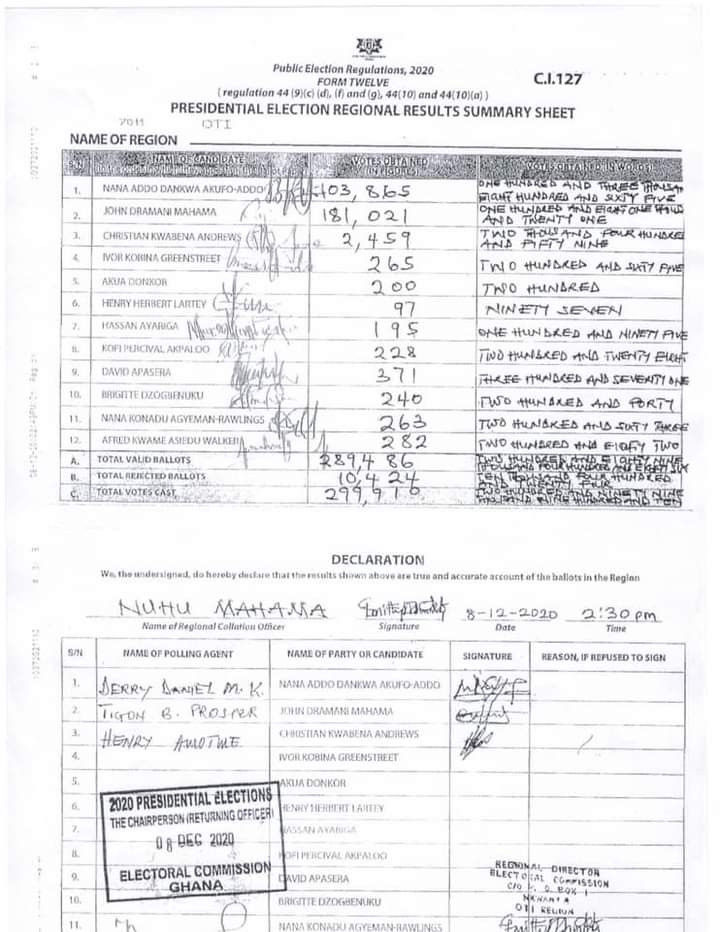 Public Election Regulations, 2020
FORM TWELVE
C.I.127
( regulation 44 (9)(c) (d), (f) and (g), 44(10) and 44(10)(a) )
PRESIDENTIAL ELECTION REGIONAL RESULTS SUMMARY SHEET
OTI
NAME OF REGION
S/N NAME OF CANDIDATE VOTES OBTAINED IN FIGURES VOTES OBTAINED IN WORDS
1. NANA ADDO DANKWA AKUFO-ADDO 103,865 ONE HUNDRED AND THREE THOUSAN EIGHT HUNDRED AND SIXTY FIVE
2. JOHN DRAMANI MAHAMA 181,021 ONE HUNDRED AND EIGHT ONE AND TWENTY ONE
3. CHRISTIAN KWABENA ANDREWS 2,459 TWO THOUSAND FOUR HUNDRED AND FIFTY NINE
4. IVOR KOBINA GREENSTREET 265 TWO HUNDRED AND SIXTY FIVE
5. AKUA DONKOR 200 TWO HUNDRED
6. HENRY HERBERT LARTEY 97 NINETY SEVEN
7. HASSAN AYARIGA 195 ONE HUNDRED AND NINETY FIVE
8. KOFI PERCIVAL AKPALOO 228 TWO HUNDRED AND TWENTY EIGHT
9. DAVID APASERA 371 THREE HUNDRED AND SEVENTY ONE
10. BRIGITTE DZOGBENUKU 240 TWO HUNDRED AND FORTY
11. NANA KONADU AGYEMAN-RAWLINGS 263 TWO HUNDRED AND SIXTY THREE
12. AFRED KWAME ASIEDU WALKER 282 TWO HUNDRED AND EIGHTY TWO
A. TOTAL VALID BALLOTS 289,486 TWO HUNDRED AND EIGHTY NINE THOUSAND FOUR HUNDRED AND EIGHTY SIX
B. TOTAL REJECTED BALLOTS 10,424 TEN THOUSAND FOUR HUNDRED AND TWENTY FOUR
C. TOTAL VOTES CAST 299,910 TWO HUNDRED AND NINETY NINE THOUSAND NINE HUNDRED AND TEN
DECLARATION
We, the undersigned, do hereby declare that the results shown above are true and accurate account of the ballots in the Region
NUHU MAHAMA 8-12-2020 2:30 pm
Name of Regional Collation Officer Signature Date Time
S/N NAME OF POLLING AGENT NAME OF PARTY OR CANDIDATE SIGNATURE REASON, IF REFUSED TO SIGN
1. DERRY DANIEL M. K. NANA ADDO DANKWA AKUFO-ADDO
2. TIGON B. PROSPER JOHN DRAMANI MAHAMA
3. HENRY CHRISTIAN KWABENA ANDREWS
4. IVOR KOBINA GREENSTREET
5. AKUA DONKOR
6. HENRY HERBERT LARTEY
7. HASSAN AYARIGA
8. KOFI PERCIVAL AKPALOO
9. DAVID APASERA
10. BRIGITTE DZOGBENUKU
11. NANA KONADU AGYEMAN-RAWLINGS
2020 PRESIDENTIAL ELECTIONS
THE CHAIRPERSON (RETURNING OFFICER)
08 DEC 2020
ELECTORAL COMMISSION
GHANA
REGIONAL DIRECTOR
ELECTORAL COMMISSION
C/O P. O. BOX 1
NKWANTA
OTI REGION